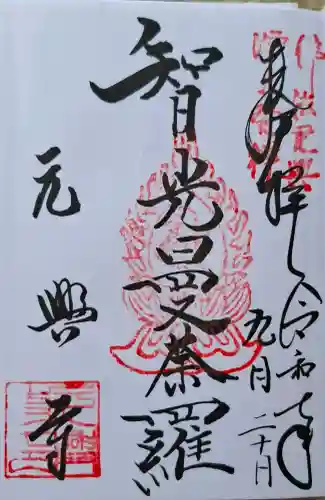 奉拝 令和七年
九月二十日
智光曼荼羅
元興寺